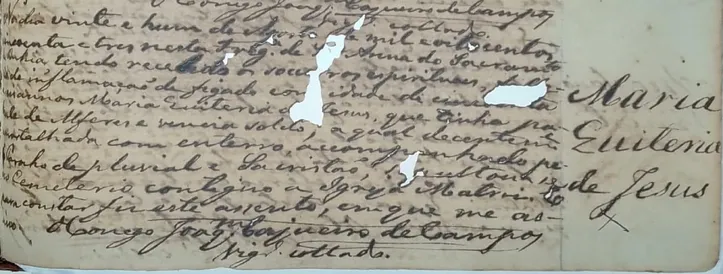 O Conego Joaq. Cajueiro de Campos
Vigr.º collado.
No dia vinte e hum de Março de mil oitocentos
sesenta e tres nesta Freg. de Sta. Anna do Sacramto
Bahia, tendo recebido os socorros espirituaes,
de inflamação de figado com idade de
annos Maria Euiteria de Jesus, que tinha pa-
te de Alferes e vencia soldo, a qual decentemte
amortalhada com enterro, acompanhado pe-
Parocho de pluvial e Sacristão, sepultou-se
no Cemeterio contiguo a Igreja Matriz. E
para constar fiz este assento, em que me as-
O Conego Joaq. Cajueiro de Campos
Vigr.º collado.
Maria
Euiteria
de Jesus